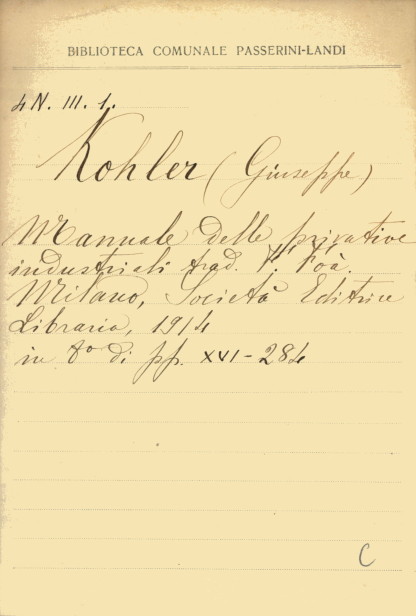 BIBLIOTECA COMUNALE PASSERINI-LANDI
4 N. III. 1.
Kohler (Giuseppe)
Manuale delle privative
industriali trad. F. Foà.
Milano, Società Editrice
Libraria, 1914
in 8° di pp. XVI-284
C